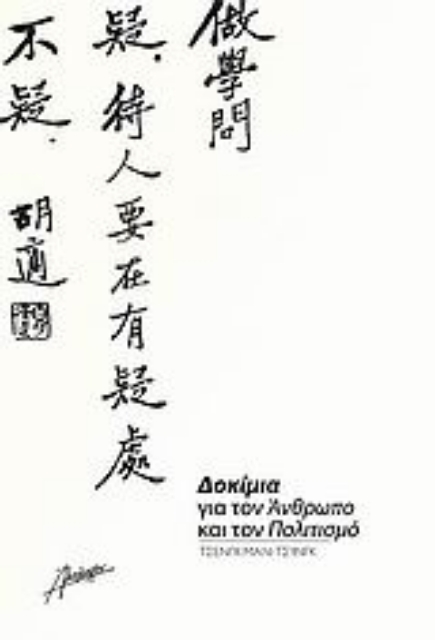 做學問
疑.待人要在有疑處
不疑.
胡適
Δοκίμια
για τον Άνθρωπο
και τον Πολιτισμό
ΤΣΕΝΓΚ ΜΑΝ-ΤΣ'ΙΝΓΚ